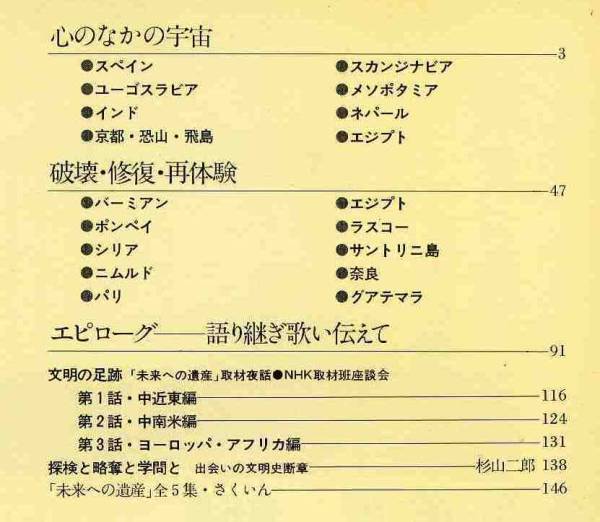 心のなかの宇宙 3
●スペイン ●スカンジナビア
●ユーゴスラビア ●メソポタミア
●インド ●ネパール
●京都・恐山・飛島 ●エジプト
破壊・修復・再体験 47
●バーミアン ●エジプト
●ポンペイ ●ラスコー
●シリア ●サントリニ島
●ニムルド ●奈良
●パリ ●グアテマラ
エピローグ──語り継ぎ歌い伝えて 91
文明の足跡 「未来への遺産」取材夜話●NHK取材班座談会
第1話・中近東編 116
第2話・中南米編 124
第3話・ヨーロッパ・アフリカ編 131
探検と略奪と学問と 出会いの文明史断章 杉山二郎 138
「未来への遺産」全5集・さくいん 146